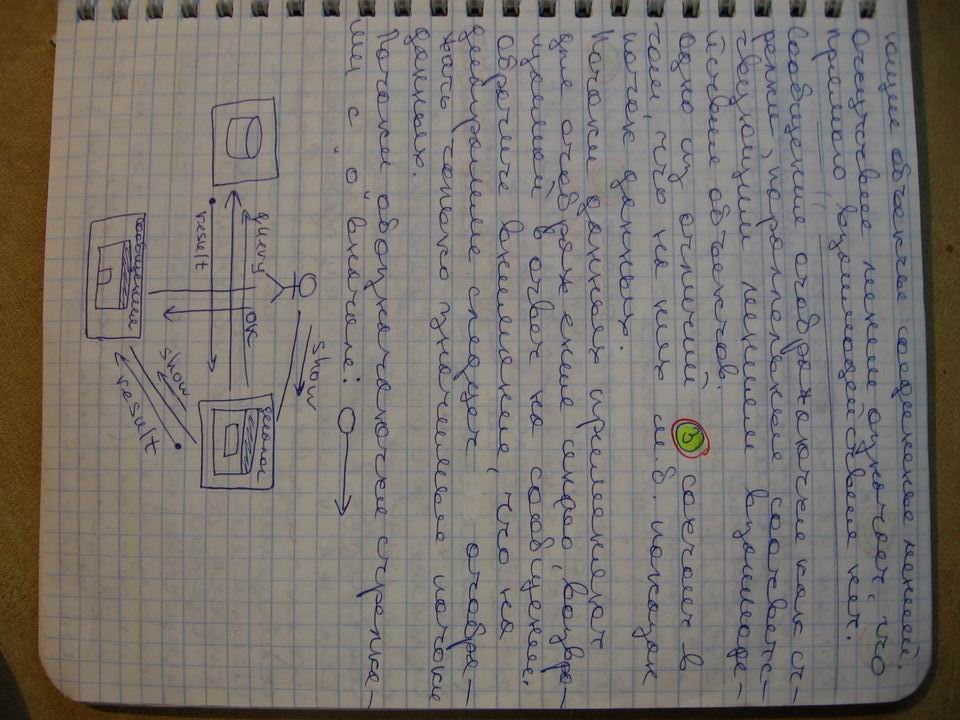 ющие объекты соединённые линией.
Отсутствие линии означает, что
прямого взаимодействия нет.
Сообщение отображаются как ст-
релки, параллельные соответс-
твующим линиям взаимоде-
йствия объектов.
Одно из отличий 3 состоит в
том, что на них м.б. показан
поток данных.
Потоки данных применяют
для отображения инфо, возвра-
щаемой в ответ на сообщение.
Обратите внимание, что на
диаграмме следует отобра-
жать только значимые потоки
данных.
Потоки обозначаются стрелка-
ми с "о" вначале:
show
диалог
query
OK
result
show
result
сообщение